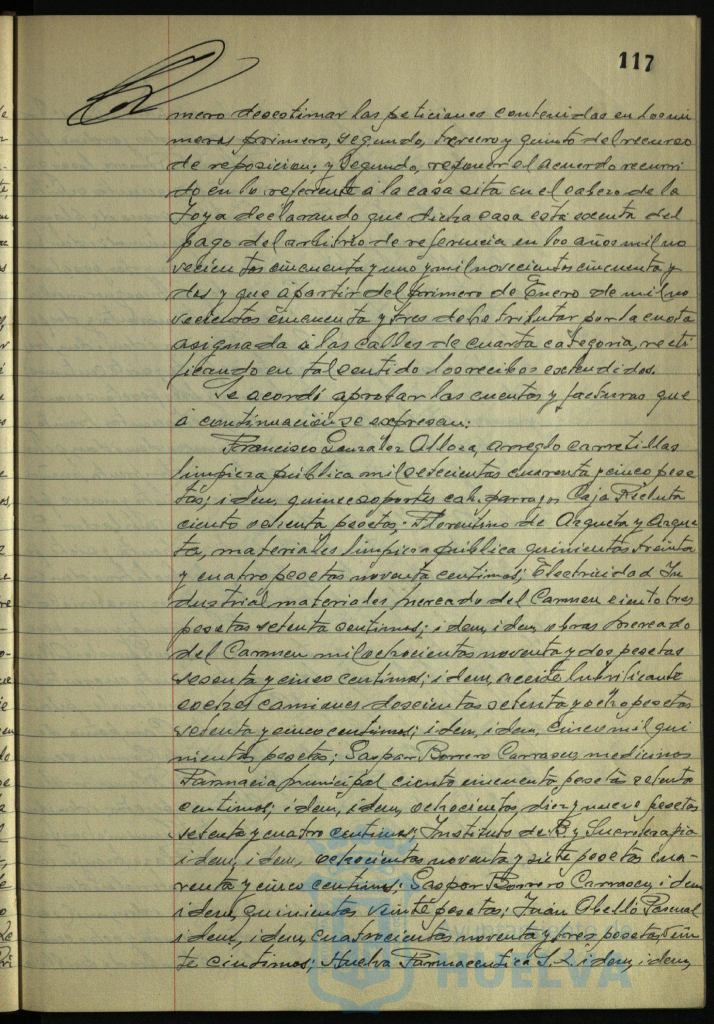 117
mero desestimar las peticiones contenidas en los nú
meros primero, segundo, tercero y quinto del recurso
de reposicion; y segundo, reponer el acuerdo recurri
do en lo referente á la casa sita en el cabezo de la
Joya declarando que dicha casa está exenta del
pago del arbitrio de referencia en los años mil no
vecientos cincuenta y uno y mil novecientos cincuenta y
dos y que á partir del primero de Enero de mil no
vecientos cincuenta y tres debe tributar por la cuota
asignada á las calles de cuarta categoria, recti
ficando en tal sentido los recibos extendidos.
Se acordó aprobar las cuentas y facturas que
á continuación se expresan:
Francisco Gonzalez Alloza, arreglo carretillas
limpieza pública mil setecientas cuarenta y cinco pese
tas; idem, quince soportes Caja Recluta
ciento setenta pesetas; Florentino de Azqueta y Azque
ta, materiales limpieza pública quinientas treinta
y cuatro pesetas noventa centimos; Electricidad In
dustrial materiales mercado del Carmen ciento tres
pesetas setenta centimos; idem, idem, obras mercado
del Carmen mil ochocientas noventa y dos pesetas
sesenta y cinco centimos; idem, aceite lubrificante
coches camiones doscientas setenta y ocho pesetas
setenta y cinco centimos; idem, idem, cinco mil qui
nientas pesetas; Gaspar Borrero Carrasco, medicinas
Farmacia municipal ciento cincuenta pesetas setenta
centimos; idem, idem, ochocientas diez y nueve pesetas
setenta y cuatro centimos; Instituto de B. y Sueroterapia
idem, idem, ochocientas noventa y siete pesetas cua-
renta y cinco centimos; Gaspar Borrero Carrasco, idem
idem, quinientas veinte pesetas; Juan Abelló Pascual
idem, idem, cuatrocientas noventa y tres pesetas vein
te centimos; Huelva Farmaceutica S. L. idem, idem,
HUELVA